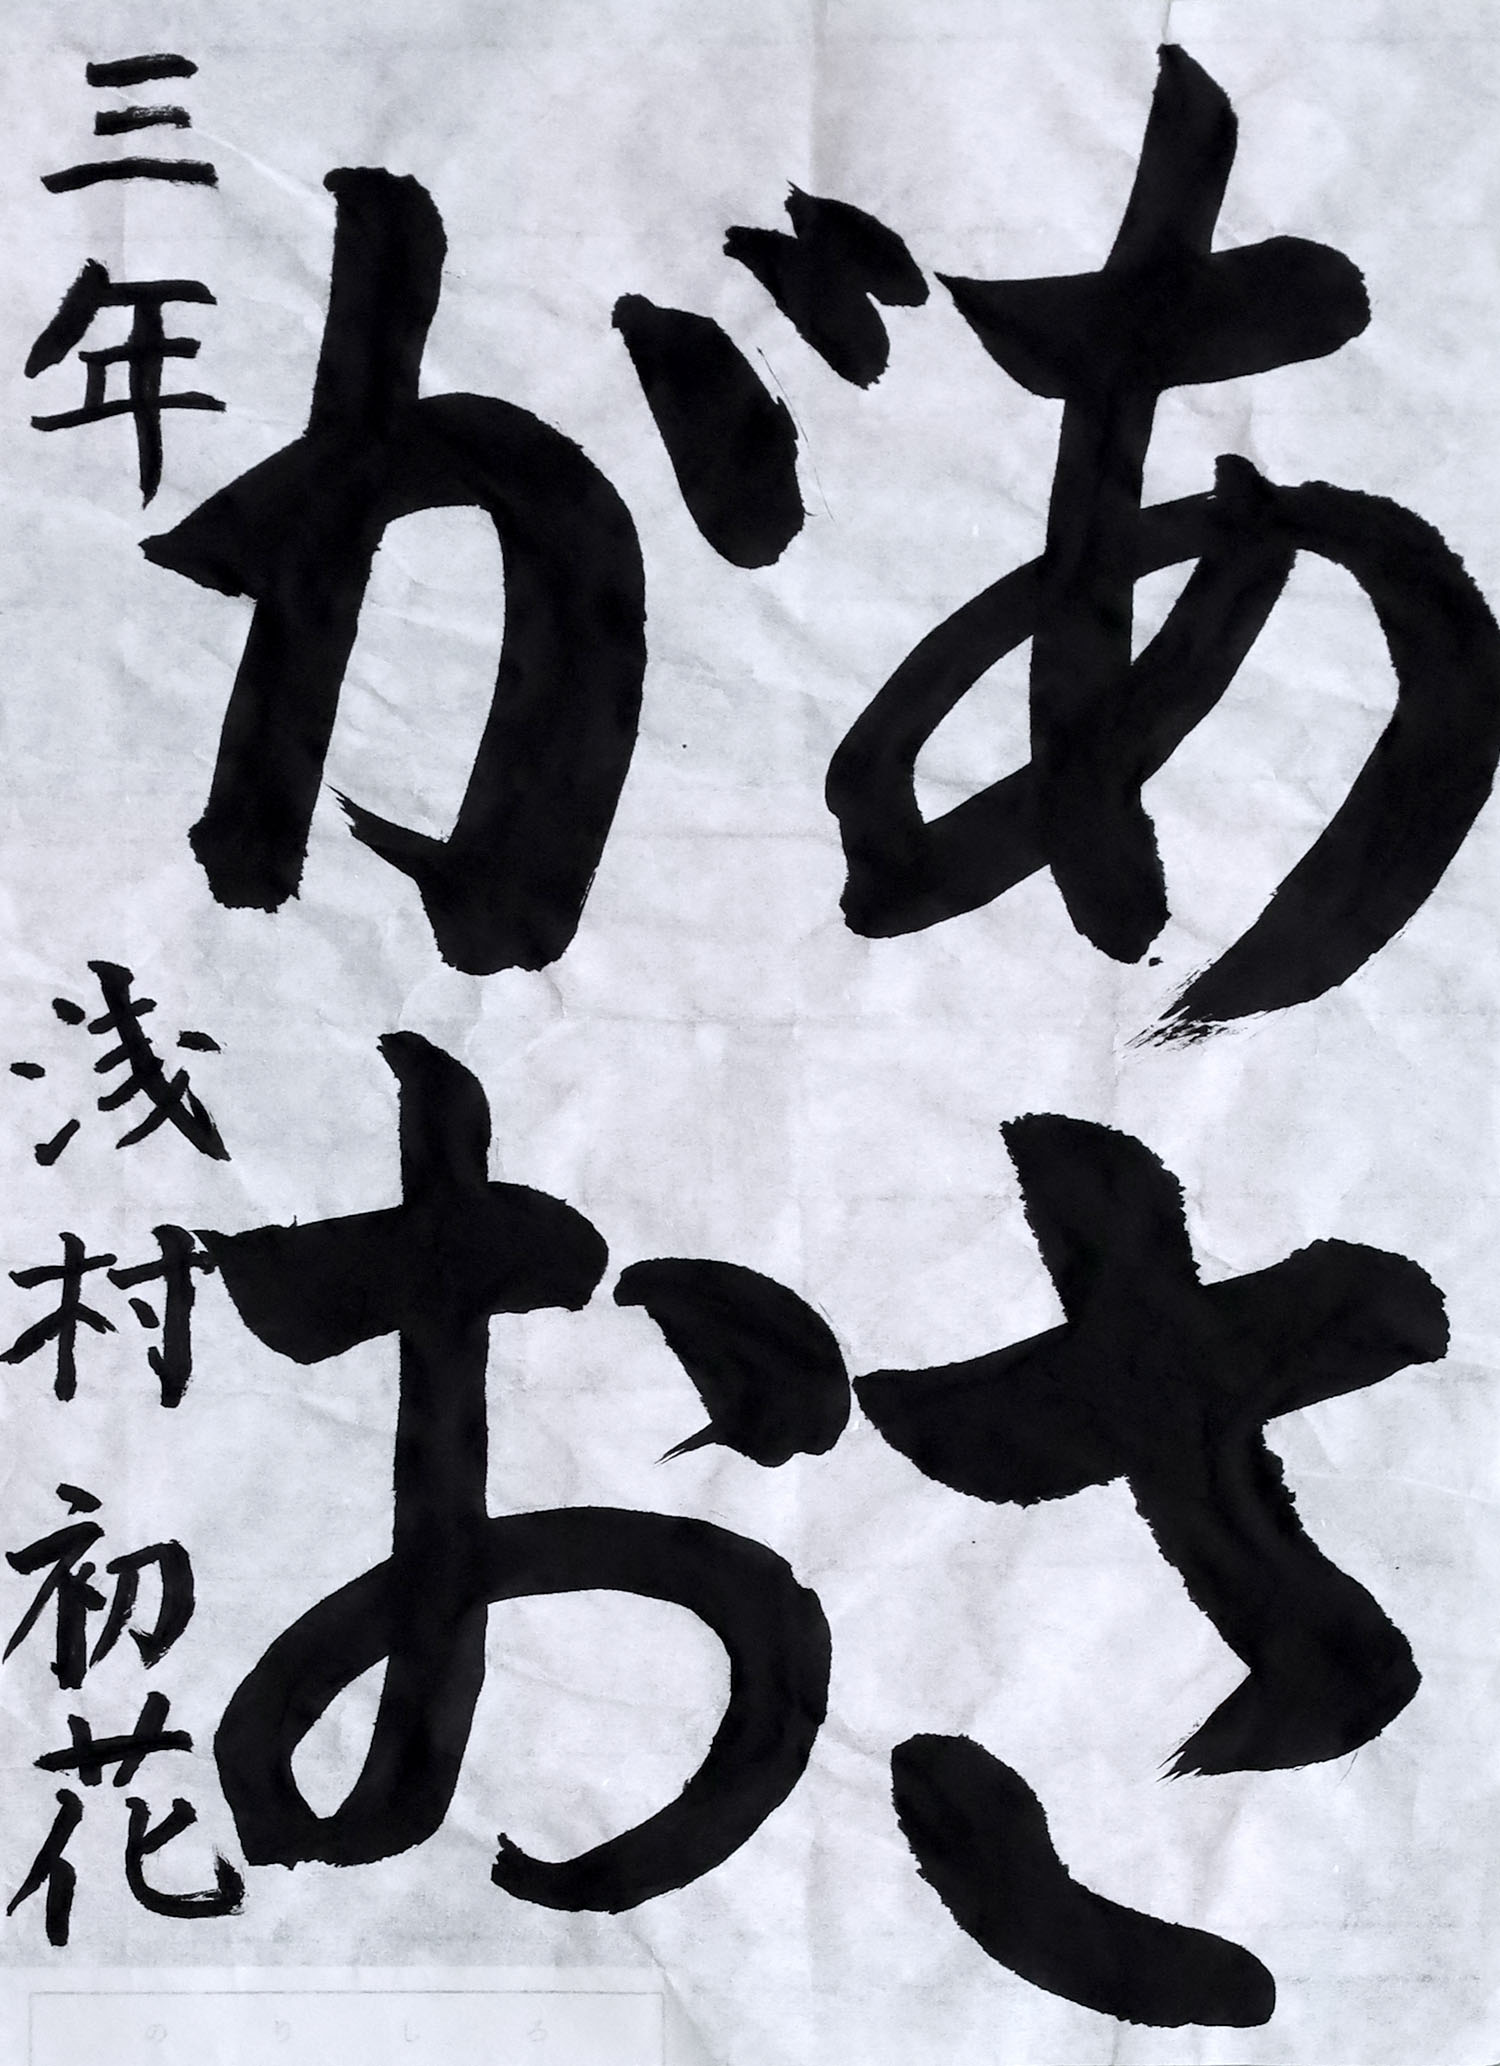 あさ
がお
三年 浅村初花
のりしろ